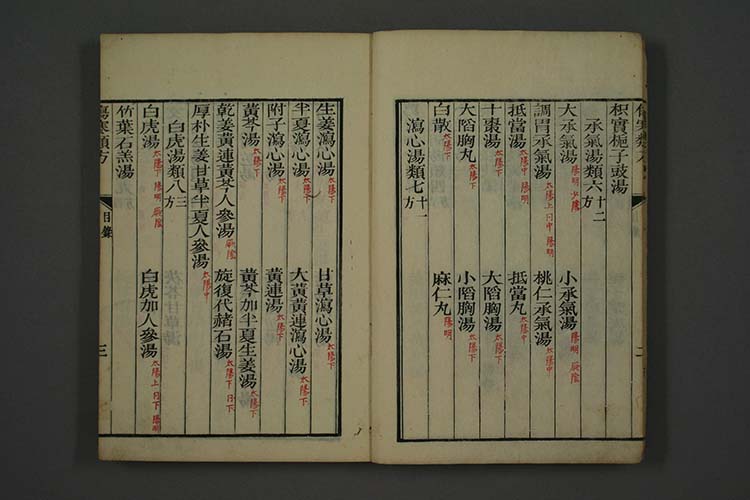 枳實梔子豉湯
承氣湯類六 十二方
大承氣湯 陽明 少陰 小承氣湯 陽明 厥陰
調胃承氣湯 太陽上 中 陽明 桃仁承氣湯 太陽中
抵當湯 太陽中 陽明 抵當丸 太陽中
十棗湯 太陽下 大陷胸湯 太陽下
大陷胸丸 太陽下 小陷胸湯 太陽下
白散 太陽下 麻仁丸 陽明
瀉心湯類七 十一方
生姜瀉心湯 太陽下 甘草瀉心湯 太陽下
半夏瀉心湯 太陽下 大黃黃連瀉心湯 太陽下
附子瀉心湯 太陽下 黃連湯 太陽下
黃芩湯 太陽下 黃芩加半夏生姜湯 太陽下
乾姜黃連黃芩人參湯 厥陰 旋復代赭石湯 太陽下
厚朴生姜甘草半夏人參湯 太陽中
白虎湯類八 三方
白虎湯 太陽下 陽明 厥陰 白虎加人參湯 太陽上 下 陽明
竹葉石羔湯
傷寒類方 目錄 三